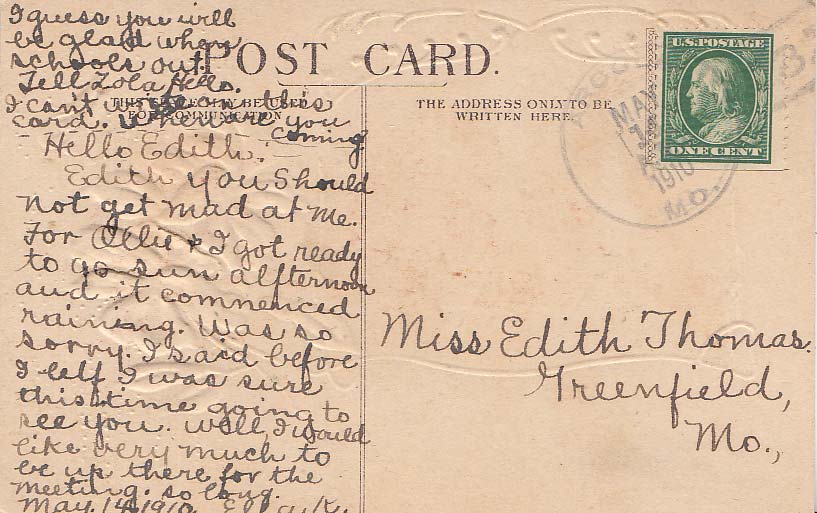 I guess you will
be glad when
schools out.
Tell Zola Hello.
I can't write on this
card. When are you
coming
POST CARD.
THIS SPACE MAY BE USED
FOR COMMUNICATION
THE ADDRESS ONLY TO BE
WRITTEN HERE.
U.S. POSTAGE
ONE CENT
MAY
1910
MO.
Hello Edith.
Edith you should
not get mad at me.
For Ollie & I got ready
to go sun alfternoon
and it commenced
raining. Was so
sorry. I said before
I left I was sure
this time going to
see you. Well, I would
like very much to
be up there for the
meeting. so long.
May. 14, 1910 Ella. K.
Miss Edith Thomas.
Greenfield,
Mo.,